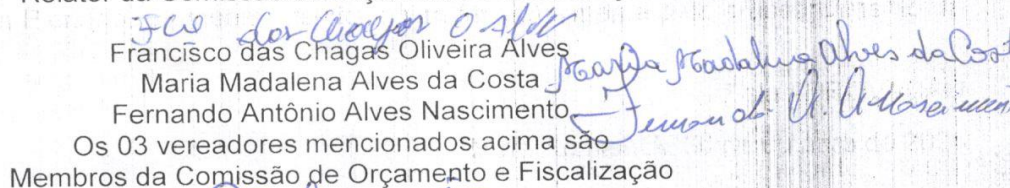 Relator da Comissão de
Fco das Chagas O Alves
Francisco das Chagas Oliveira Alves
Maria Madalena Alves da Costa Maria Madalena Alves da Cost
Fernando Antônio Alves Nascimento Fernando A. A Nascimento
Os 03 vereadores mencionados acima são
Membros da Comissão de Orçamento e Fiscalização